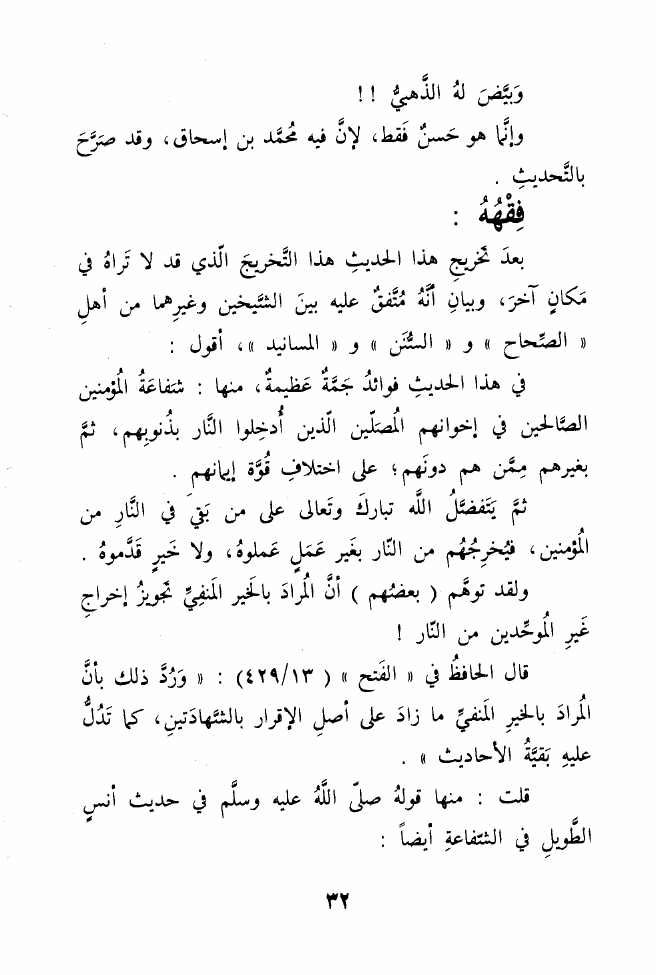 وَبَيَّضَ لهُ الذَّهبيُّ !!
وإنَّما هو حَسنٌ فَقط، لإنَّ فيه مُحمَّد بن إسحاق، وقد صرَّحَ
بالتَّحديثِ .
فِقْهُهُ :
بعدَ تَخريجِ هذا الحديثِ هذا التَّخريجَ الّذي قد لا تَراهُ في
مَكانٍ آخرَ، وبيانِ أنَّهُ مُتَّفقٌ عليه بينَ الشَّيخين وغيرِهما من أهلِ
« الصِّحاح » و « السُّنَن » و « المسانيد »، أقول :
في هذا الحديثِ فوائدُ جَمَّةٌ عَظيمةٌ، منها : شَفاعَةُ المُؤمنين
الصَّالحين في إخوانهم المُصَلّين الّذين أُدخِلوا النَّار بذُنوبِهم، ثمَّ
بغيرهم مِمَّن هم دونَهم؛ على اختلافِ قُوَّة إيمانهم .
ثمَّ يَتَفضَّلُ اللَّه تباركَ وتَعالى على من بَقيَ في النَّارِ من
المُؤمنين، فيُخرِجُهُم من النّار بغَير عَمَلٍ عَملوهُ، ولا خَيرٍ قَدَّموهُ .
ولقد توهَّم ( بعضُهم ) أنَّ المُرادَ بالخَير المَنفِيِّ تَجويزُ إخراجِ
غَيرِ المُوحِّدين من النّار !
قال الحافظُ في « الفَتح » ( ٤٢٩/١٣) : « وَرُدَّ ذلك بأنَّ
المُرادَ بالخَيرِ المَنفيِّ ما زادَ على أصلِ الإقرار بالشَّهادَتينِ، كما تَدُلُّ
عليهِ بَقيَّةُ الأحاديث » .
قلت : منها قولهُ صلّى اللَّهُ عليه وسلَّم في حديث أنسٍ
الطَّويلِ في الشّفاعةِ أيضاً :
٣٢